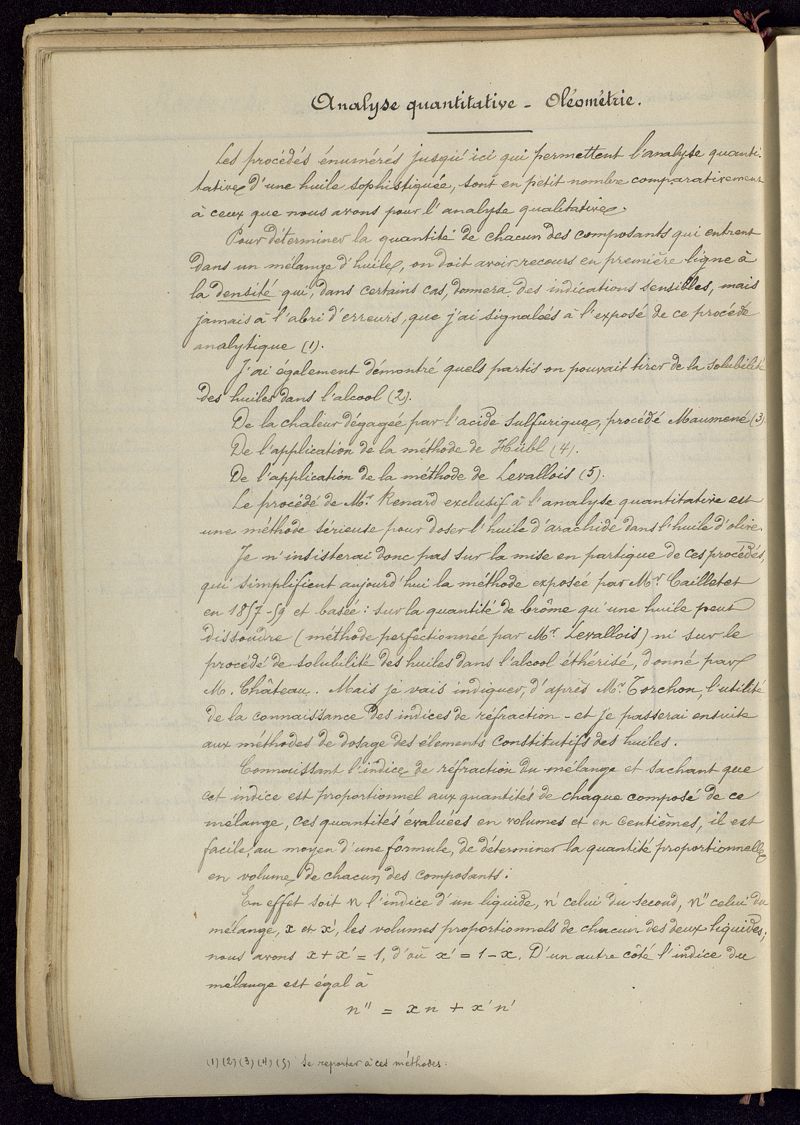 Analyse quantitative - Oléométrie.
Les procédés énumérés jusqu'ici qui permettent l'analyse quanti-
tative d'une huile sophistiquée, sont en petit nombre comparativement
à ceux que nous avons pour l'analyse qualitative.
Pour déterminer la quantité de chacun des composants qui entrent
dans un mélange d'huile, on doit avoir recours en première ligne à
la densité qui, dans certains cas, donnera des indications sensibles, mais
jamais à l'abri d'erreurs, que j'ai signalées à l'exposé de ce procédé
analytique (1).
J'ai également démontré quels partis on pouvait tirer de la solubilité
des huiles dans l'alcool (2).
De la chaleur dégagée par l'acide sulfurique, procédé Maumené (3)
De l'application de la méthode de Hübl (4).
De l'application de la méthode de Levallois (5).
Le procédé de Mr. Renard exclusif à l'analyse quantitative est
une méthode sérieuse pour doser l'huile d'arachide dans l'huile d'olive.
Je n'insisterai donc pas sur la mise en partique de ces procédés,
qui simplifient aujourd'hui la méthode exposée par Mr. Cailletet
en 1857-59 et basée : sur la quantité de brôme qu'une huile peut
dissoudre (méthode perfectionnée par Mr. Levallois) ni sur le
procédé de solubilité des huiles dans l'alcool éthérisé, donné par
M. Château. Mais je vais indiquer, d'après Mr. Torchon, l'utilité
de la connaissance des indices de réfraction - et je passerai ensuite
aux méthodes de dosage des élements constitutifs des huiles.
Connaissant l'indice de réfraction du mélange et sachant que
cet indice est proportionnel aux quantités de chaque composé de ce
mélange, ces quantités évaluées en volumes et en centièmes, il est
facile, au moyen d'une formule, de déterminer la quantité proportionnelle
en volume de chacun des composants :
En effet soit n l'indice d'un liquide, n' celui du second, n'' celui du
mélange, x et x', les volumes proportionnels de chacun des deux liquides;
nous avons x + x' = 1, d'où x' = 1 - x. D'un autre côté l'indice du
mélange est égal à
n'' = x n + x' n'
(1) (2) (3) (4) (5) Se reporter à ces méthodes.